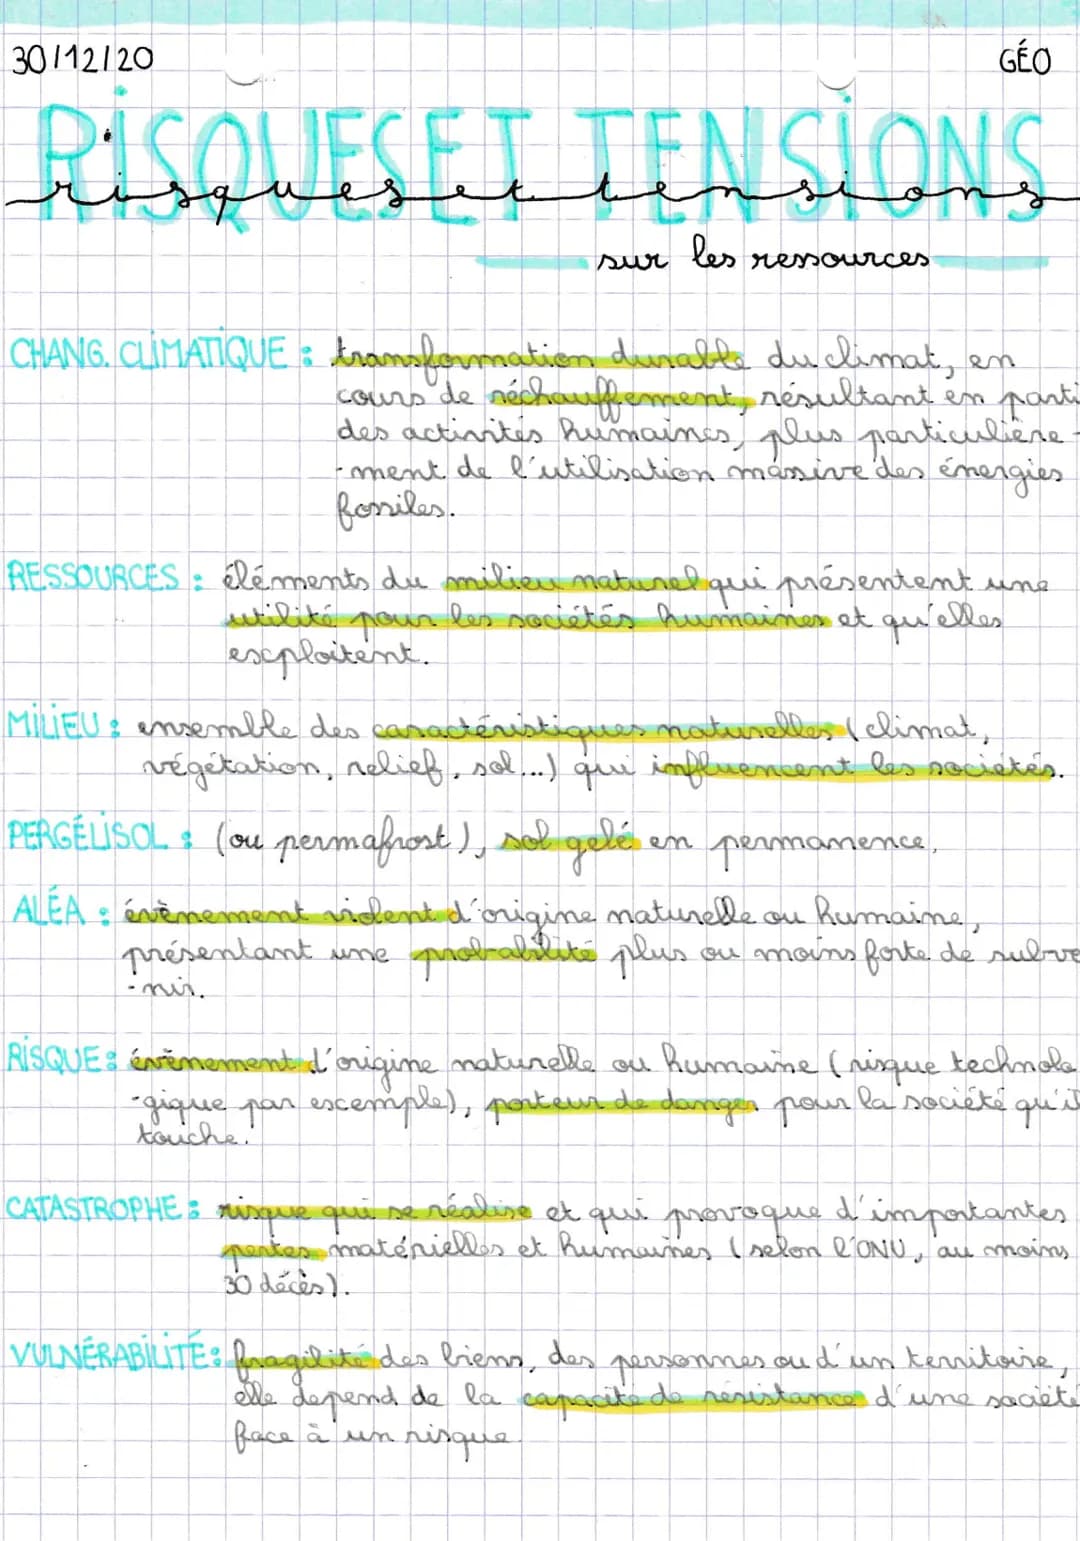 30/12/20 GÉO
RISQUES ET TENSIONS
risques et tensions
sur les ressources
CHANG. CLIMATIQUE : transformation durable du climat, en
cours de réchauffement, résultant en parti
des activités humaines, plus particulière-
-ment de l'utilisation massive des énergies
fossiles.
RESSOURCES : éléments du milieu naturel qui présentent une
utilité pour les sociétés humaines et qu'elles
exploitent.
MILIEU : ensemble des caractéristiques naturelles (climat,
végétation, relief, sol...) qui influencent les sociétés.
PERGÉLISOL : (ou permafrost), sol gelé en permanence.
ALÉA : évènement violent d'origine naturelle ou humaine,
présentant une probabilité plus ou moins forte de subve
-nir.
RISQUE : évènement d'origine naturelle ou humaine (risque technolo
-gique par excemple), porteur de danger pour la société qu'il
touche.
CATASTROPHE : risque qui se réalise et qui provoque d'importantes
pertes matérielles et humaines (selon l'ONU, au moins
30 décès).
VULNÉRABILITÉ : fragilité des biens, des personnes ou d'un territoire,
elle depend de la capacité de résistance d'une société
face à un risque.